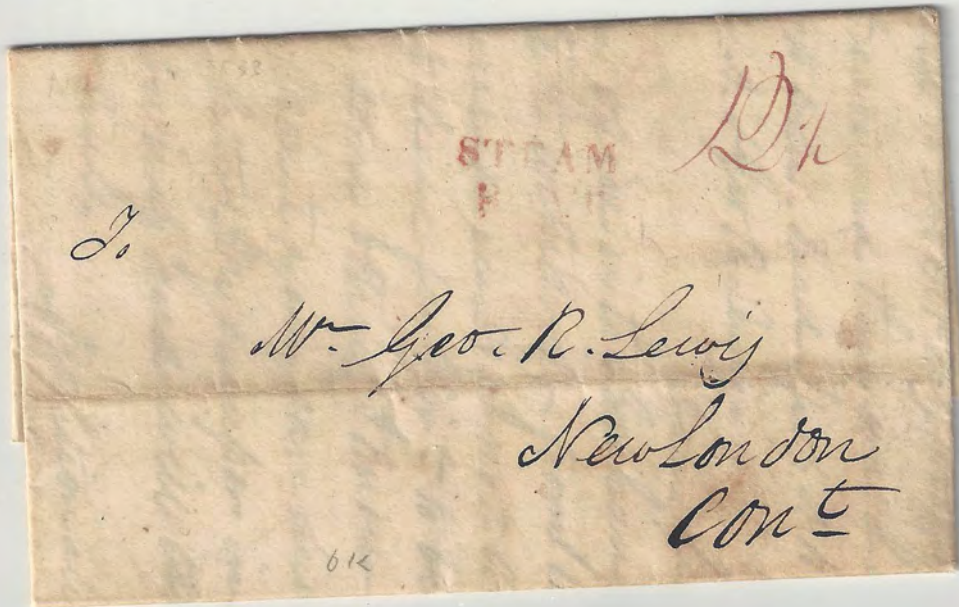 STEAM
12½
To
Mr. Geo. R. Lewis
New London
Cont
6K